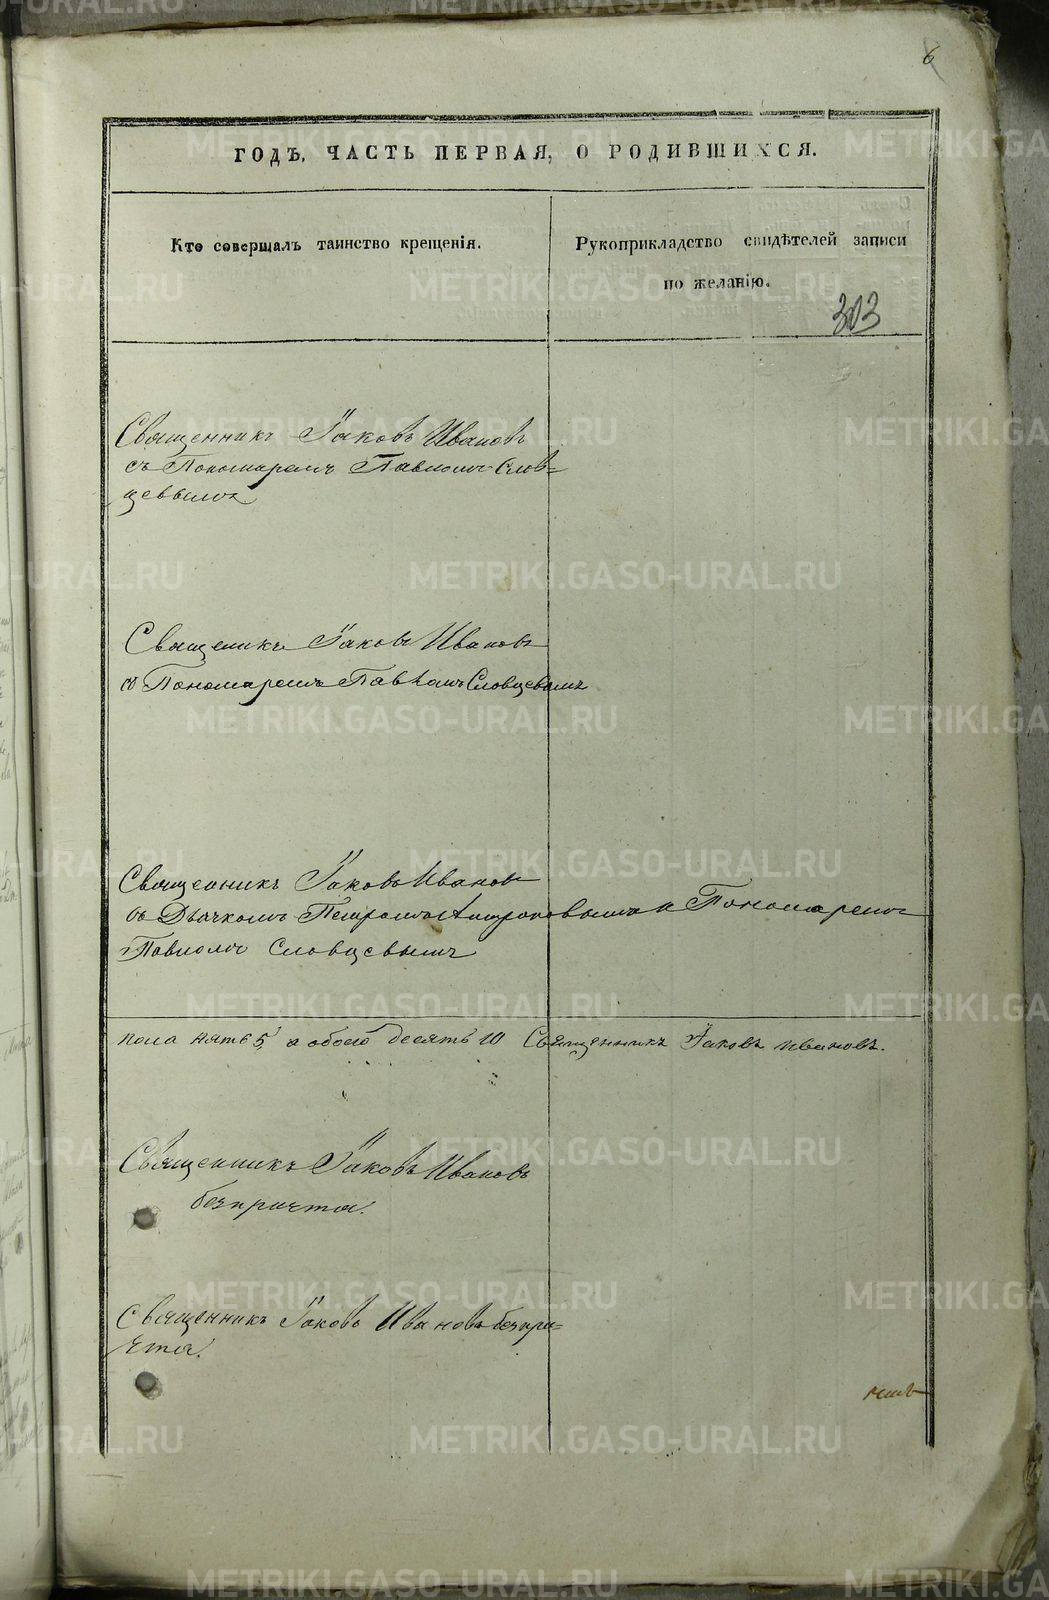 6
ГОДЪ, ЧАСТЬ ПЕРВАЯ, О РОДИВШИХСЯ.
Кто совершалъ таинство крещенія.
Рукоприкладство свидѣтелей записи
по желанію.
303
Священникъ Іаковъ Ивановъ
съ Пономаремъ Павломъ Слов=
цевымъ
Священикъ Іаковъ Ивановъ
съ Пономаремъ Павломъ Словцевымъ
Священникъ Іаковъ Ивановъ
съ Дьячкомъ Петромъ и Пономаремъ
Павломъ Словцевымъ
пола пять 5, а обоего десять 10 Священникъ Іаковъ Ивановъ.
Священникъ Іаковъ Ивановъ
безпричта.
Священникъ Іаковъ Ивановъ безпри=
чта.
METRIKI.GASO-URAL.RU